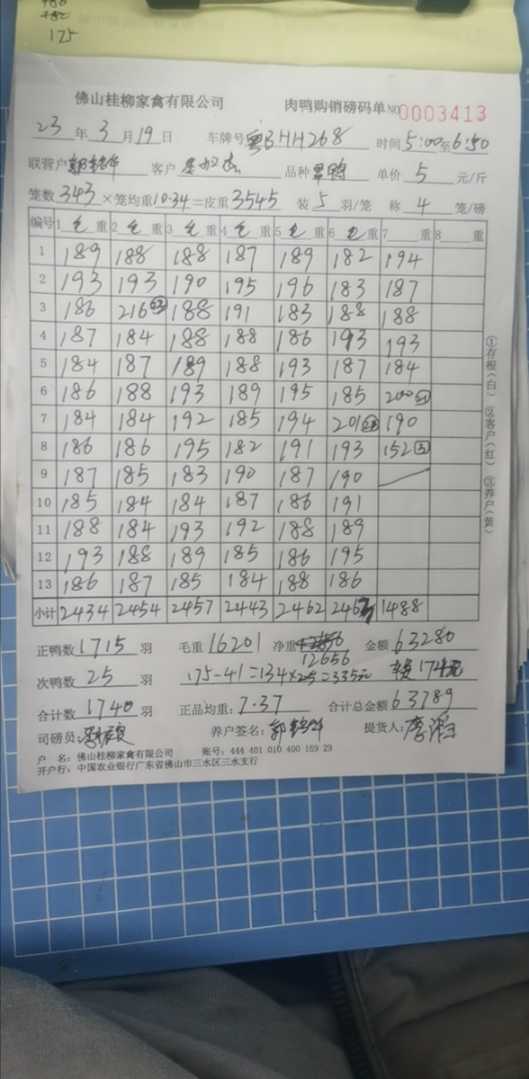 175
佛山桂柳家禽有限公司 肉鸭购销磅码单 NO 0003413
23 年 3 月 19 日 车牌号 粤BHH268 时间 5:00 至 6:50
联营户 客户 品种 单价 5 元/斤
笼数 343 ×笼均重 10.34 =皮重 3545 装 5 羽/笼 称 4 笼/磅
编号 1 毛 重 2 毛 重 3 毛 重 4 毛 重 5 毛 重 6 毛 重 7 重 8 重
1 189 188 188 187 189 182 194
2 193 193 190 195 196 183 187
3 186 216 188 191 183 188 188
4 187 184 188 188 186 193 193
5 184 187 189 188 193 187 184
6 186 188 193 189 195 185 200
7 184 184 192 185 194 201 190
8 186 186 195 182 191 193 152
9 187 185 183 190 187 190
10 185 184 184 187 186 191
11 188 184 193 192 188 189
12 193 188 189 185 186 195
13 186 187 185 184 188 186
小计 2434 2454 2457 2443 2462 2463 1488
①存根(白) ②客户(红) ③养户(黄)
正鸭数 1715 羽 毛重 16201 净重 12656 金额 63280
次鸭数 25 羽 175-41=134×2.5=335元 174元
合计数 1740 羽 正品均重: 7.37 合计总金额 63789
司磅员: 养户签名: 提货人:
户 名: 佛山桂柳家禽有限公司 账号: 444 461 010 400 159 23
开户行: 中国农业银行广东省佛山市三水区三水支行